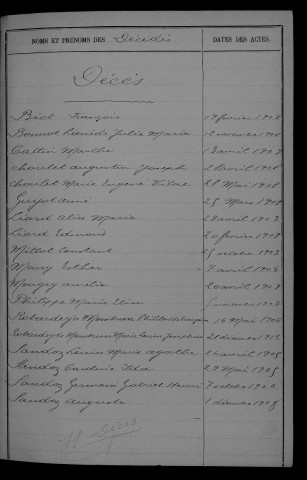 NOMS ET PRÉNOMS DES Décédés
DATES DES ACTES.
Décès
Biol François 17 février 1908
Bonnot Léonide Julie Maria 12 novembre 1908
Cattin Marthe 13 avril 1903
Choulet Augustin Joseph 2 avril 1908
Choulet Marie Eugène 28 Mai 1908
Guyot Aimé 25 Mars 1908
Liard Alix Marie 29 avril 1903
Liard Edmond 20 février 1908
Millot Constant 25 octobre 1903
Maury Esther 7 avril 1903
Mougey Amélie 20 avril 1903
Philippe Marie Elise novembre 1903
Robardey 16 Mai 1908
Robardey Marie Louise Joséphine 21 décembre 1912
Sandoz Louise Marie Agathe 26 avril 1908
Sandoz Ida 29 Mai 1908
Sandoz Germain Gabriel Henri 7 octobre 1902
Sandoz Auguste 1 décembre 1908
18 Décès